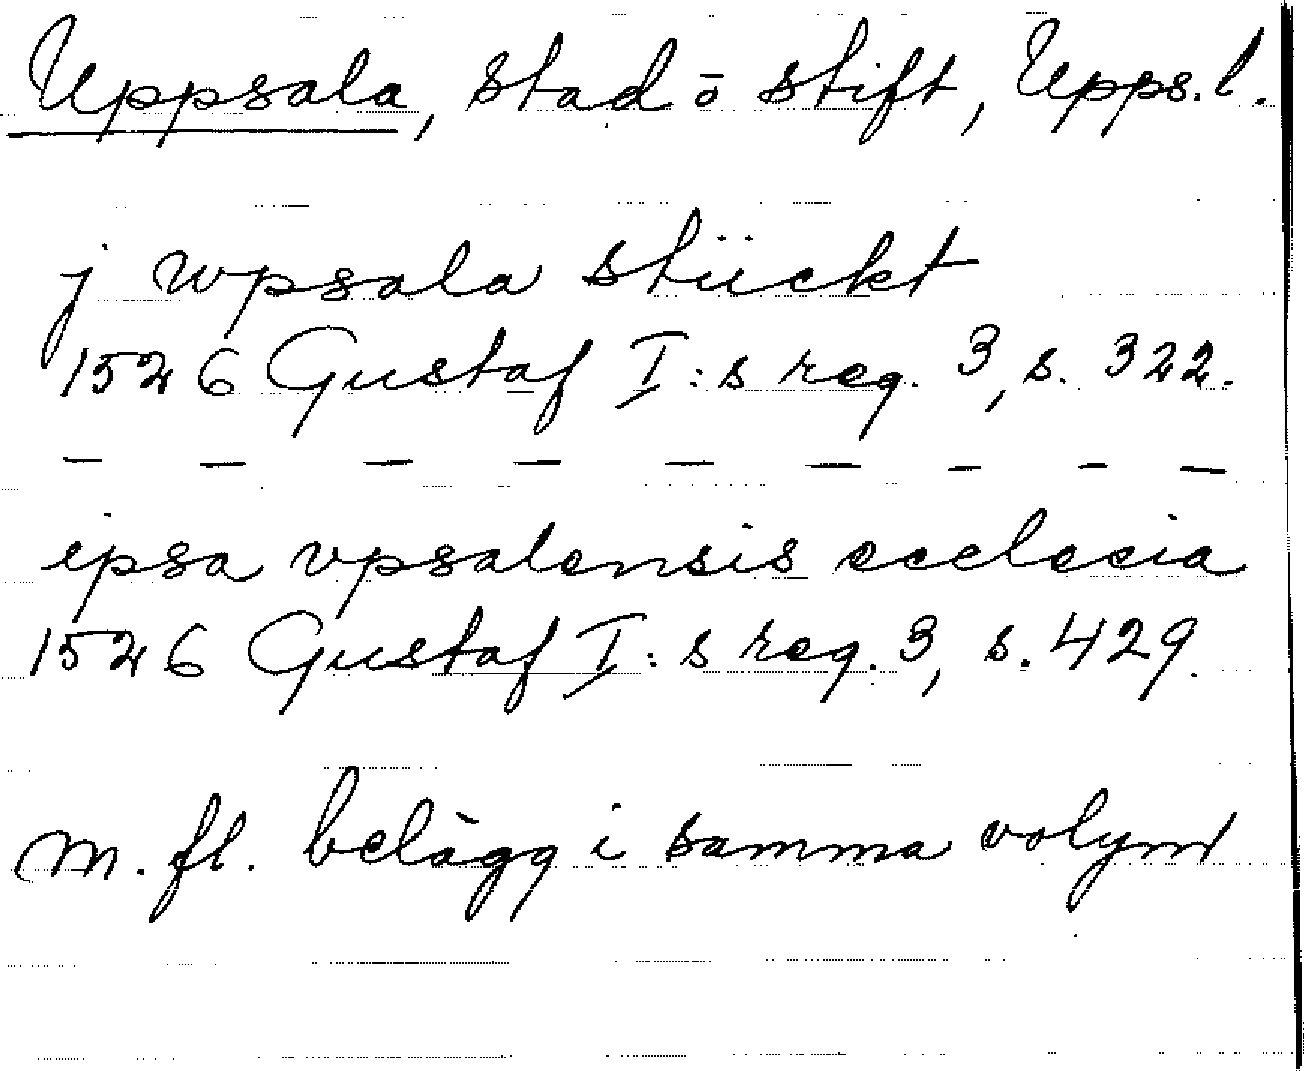 Uppsala, stad o stift, Upps. l.
j wpsala stückt
1526 Gustaf I:s reg. 3, s. 322.
— — — — — — — — —
ipsa vpsalensis ecclecia
1526 Gustaf I:s reg. 3, s. 429.
m. fl. belägg i samma volym